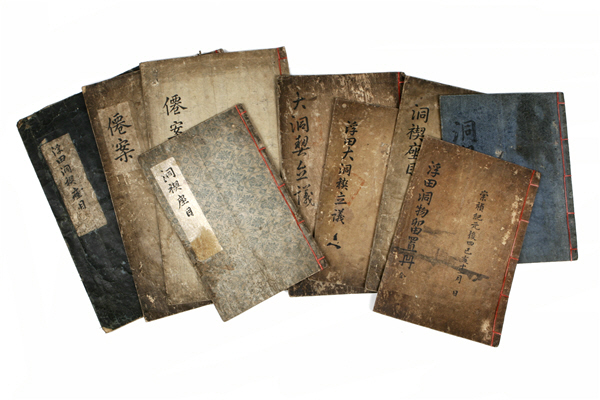 浮田洞禊座目
僊案
僊案
洞禊座目
大洞契立議
浮田大洞禊立議
洞禊座目
崇禎紀元後四己亥 月 日
浮田洞物留置冊
洞